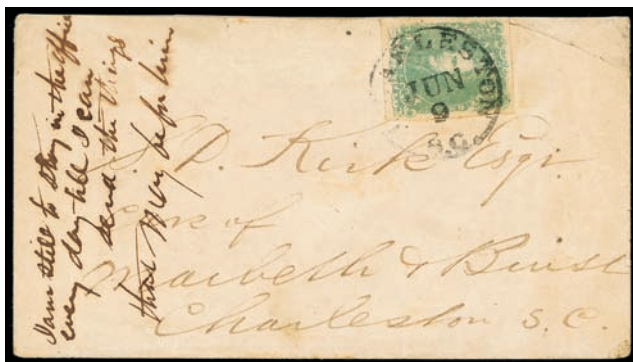 I am still to stay in the office
every day till I can
send the things
that May be for him
ARLESTON
JUN
9
S.C.
S. D. Kirk Esqr.
Care of
Macbeth & Buist
Charleston S. C.